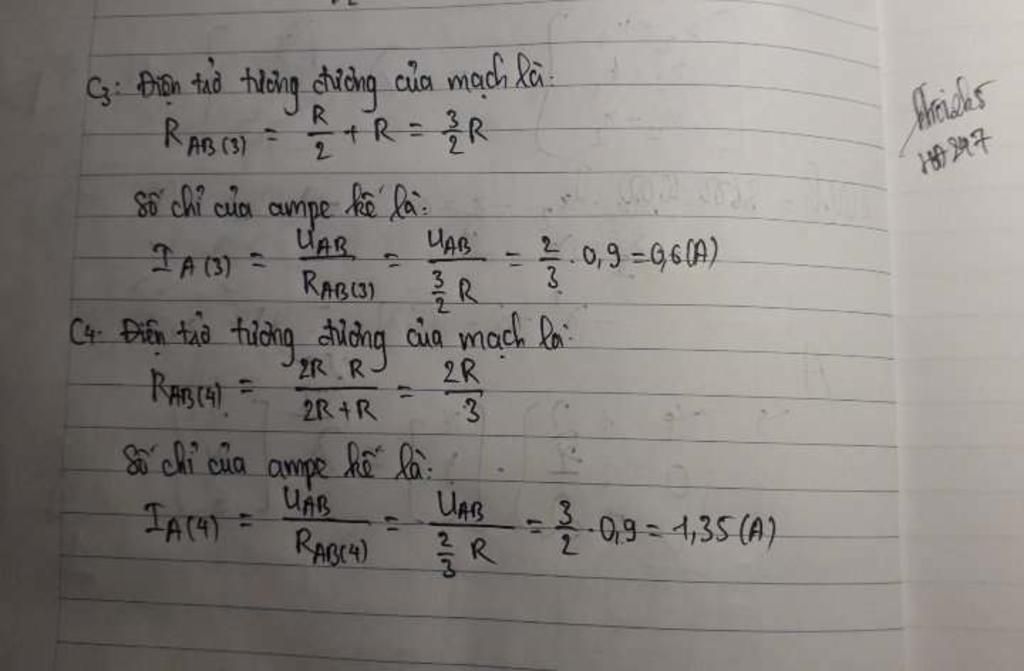 C3: Điện trở tương đương của mạch là:
R AB(3) = R/2 + R = 3/2 R
Số chỉ của ampe kế là:
I A(3) = UAB / RAB(3) = UAB / (3/2 R) = 2/3 . 0,9 = 0,6(A)
C4: Điện trở tương đương của mạch là:
R AB(4) = 2R.R / 2R+R = 2R / 3
Số chỉ của ampe kế là:
I A(4) = UAB / RAB(4) = UAB / (2/3 R) = 3/2 . 0,9 = 1,35(A)